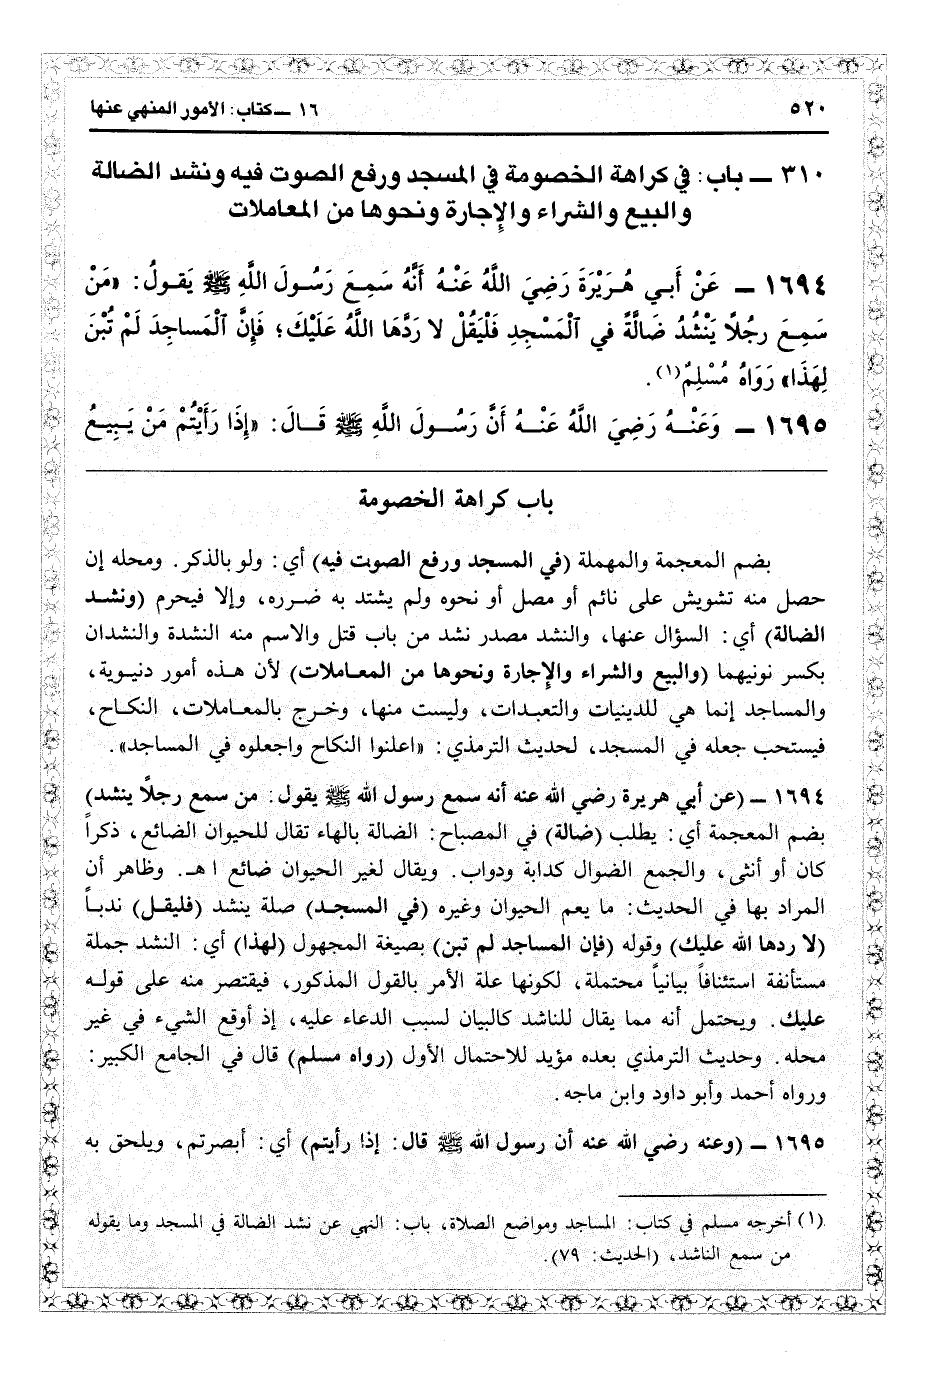 ٥٢٠
١٦ ـ كتاب: الأمور المنهي عنها
٣١٠ ـ باب: في كراهة الخصومة في المسجد ورفع الصوت فيه ونشد الضالة
والبيع والشراء والإجارة ونحوها من المعاملات
١٦٩٤ ـ عَنْ أَبي هُـرَيْرَةَ رَضِيَ اللَّهُ عَنْـهُ أَنَّهُ سَمِـعَ رَسُولَ اللَّهِ ﷺ يَقـولُ: «مَنْ
سَمِـعَ رجُلاً يَنْشُدُ ضَالَّةً في ٱلْمَسْجِدِ فَلْيَقُلْ لا رَدَّهَا اللَّهُ عَلَيْكَ؛ فَإِنَّ ٱلْمَساجِدَ لَمْ تُبْنَ
لِهَذَا» رَوَاهُ مُسْلِمٌ(١).
١٦٩٥ ـ وَعَنْـهُ رَضِيَ اللَّهُ عَنْـهُ أَنَّ رَسُـولَ اللَّهِ ﷺ قَـالَ: «إِذَا رَأَيْتُمْ مَنْ يَـبِيـعُ
باب كراهة الخصومة
بضم المعجمة والمهملة (في المسجد ورفع الصوت فيه) أي: ولو بالذكر. ومحله إن
حصل منه تشويش على نائم أو مصل أو نحوه ولم يشتد به ضـرره، وإلا فيحرم (ونشـد
الضالة) أي: السؤال عنها، والنشد مصدر نشد من باب قتل والاسم منه النشدة والنشدان
بكسر نونيهما (والبيع والشراء والإجارة ونحوها من المعـاملات) لأن هـذه أمور دنيـوية،
والمساجد إنما هي للدينيات والتعبـدات، وليست منها، وخـرج بالمعـاملات، النكـاح،
فيستحب جعله في المسجد، لحديث الترمذي: «اعلنوا النكاح واجعلوه في المساجد».
١٦٩٤ ـ (عن أبي هريرة رضي الله عنه أنه سمع رسول الله ﷺ يقول: من سمع رجلًا ينشد)
بضم المعجمة أي: يطلب (ضالة) في المصباح: الضالة بالهاء تقال للحيوان الضائع، ذكراً
كان أو أنثى، والجمع الضوال كدابة ودواب. ويقال لغير الحيوان ضائع ا هـ. وظاهر أن
المراد بها في الحديث: ما يعم الحيوان وغيره (في المسجـد) صلة ينشد (فليقـل) ندبـاً
(لا ردها الله عليك) وقوله (فإن المساجد لم تبن) بصيغة المجهول (لهذا) أي: النشد جملة
مستأنفة استئنافاً بيانياً محتملة، لكونها علة الأمر بالقول المذكور، فيقتصر منه على قولـه
عليك. ويحتمل أنه مما يقال للناشد كالبيان لسبب الدعاء عليه، إذ أوقع الشيء في غير
محله. وحديث الترمذي بعده مؤيد للاحتمال الأول (رواه مسلم) قال في الجامع الكبير:
ورواه أحمد وأبو داود وابن ماجه.
١٦٩٥ ـ (وعنه رضي الله عنه أن رسول الله ﷺ قال: إذا رأيتم) أي: أبصرتم، ويلحق به
(١) أخرجه مسلم في كتاب: المساجد ومواضع الصلاة، باب: النهي عن نشد الضالة في المسجد وما يقوله
من سمع الناشد، (الحديث: ٧٩).